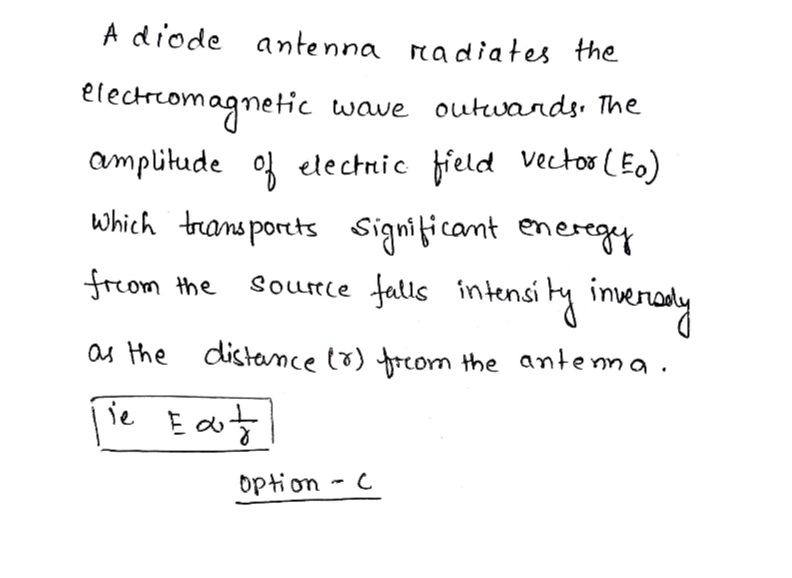 A diode antenna radiates the
electromagnetic wave outwards. The
amplitude of electric field vector (E₀)
which transports significant eneregy
from the source falls intensity inversely
as the distance (r) from the antenna.
ie E ∝ 1/r
option - C